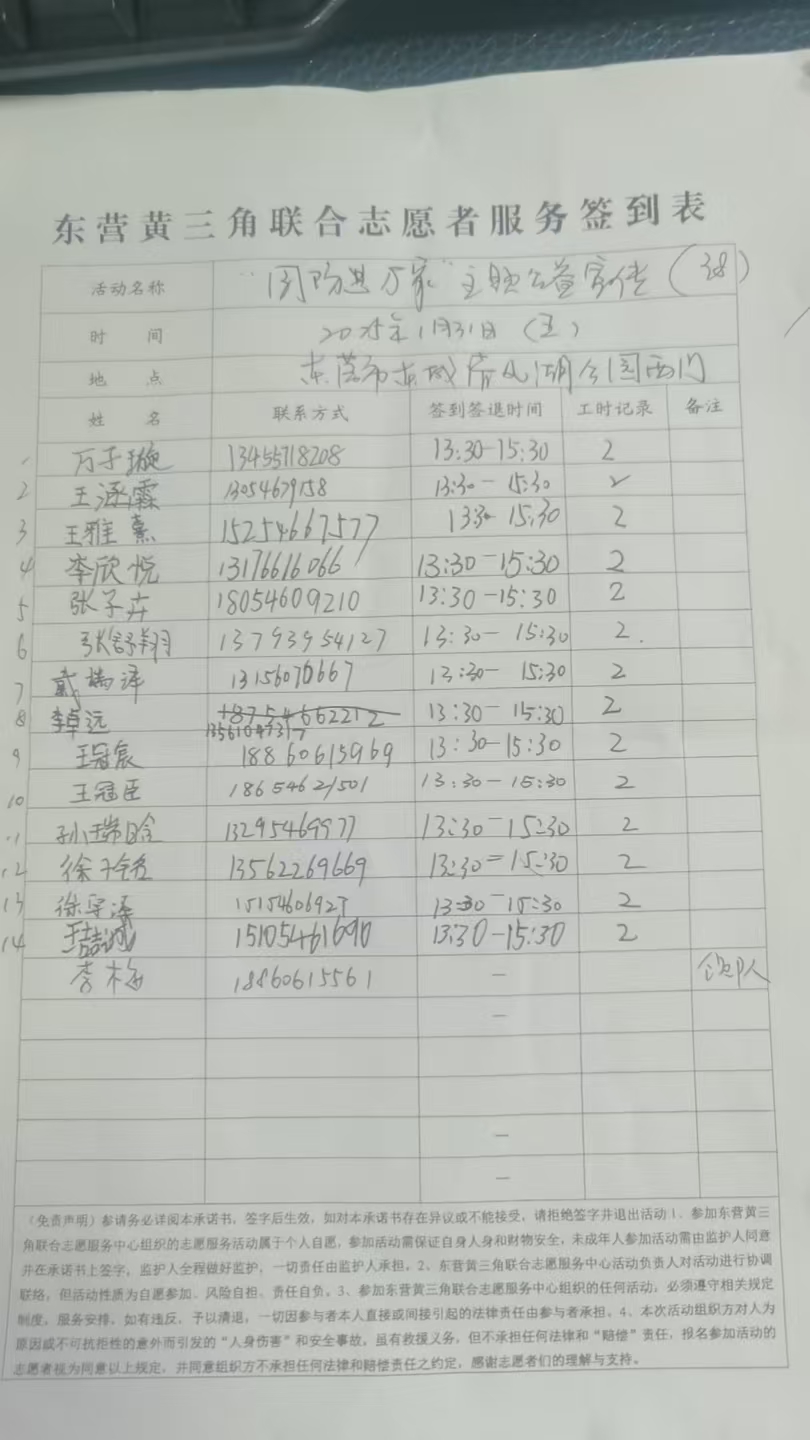 东营黄三角联合志愿者服务签到表
活动名称 “国防进万家”主题公益宣传（38）
时 间 2025年1月31日（五）
地 点 东营市东城清风湖公园西门
姓 名 联系方式 签到签退时间 工时记录 备注
1 万子璇 13455718208 13:30-15:30 2
2 王涵霖 13054679158 13:30-15:30 2
3 王雅熹 15254667577 1330-15:30 2
4 李欣悦 13176616066 13:30-15:30 2
5 张子卉 18054609210 13:30-15:30 2
6 张舒翔 13793954127 13:30-15:30 2.
7 戴瑞泽 13156070667 13:30-15:30 2
8 李卓远 18754662212 13:30-15:30 2
13561047317
9 王冠宸 18860615969 13:30-15:30 2
10 王冠臣 18654621501 13:30-15:30 2
11 孙瑞晗 13295469977 13:30-15:30 2
12 徐子 13562269669 13:30=15:30 2
13 徐 15154606927 13:30-15:30 2
14 王喆 15105461690 13:30-15:30 2
李梅 18860615561 —
—
—
—
（免责声明）参请务必详阅本承诺书，签字后生效，如对本承诺书存在异议或不能接受，请拒绝签字并退出活动1、参加东营黄三
角联合志愿服务中心组织的志愿服务活动属于个人自愿，参加活动需保证自身人身和财物安全，未成年人参加活动需由监护人同意
并在承诺书上签字，监护人全程做好监护，一切责任由监护人承担。2、东营黄三角联合志愿服务中心活动负责人对活动进行协调
联络，但活动性质为自愿参加、风险自担、责任自负。3、参加东营黄三角联合志愿服务中心组织的任何活动，必须遵守相关规定
制度，服务安排，如有违反，予以清退，一切因参与者本人直接或间接引起的法律责任由参与者承担。4、本次活动组织方对人为
原因或不可抗拒性的意外而引发的“人身伤害”和安全事故，虽有救援义务，但不承担任何法律和“赔偿”责任，报名参加活动的
志愿者视为同意以上规定，并同意组织方不承担任何法律和赔偿责任之约定，感谢志愿者们的理解与支持。